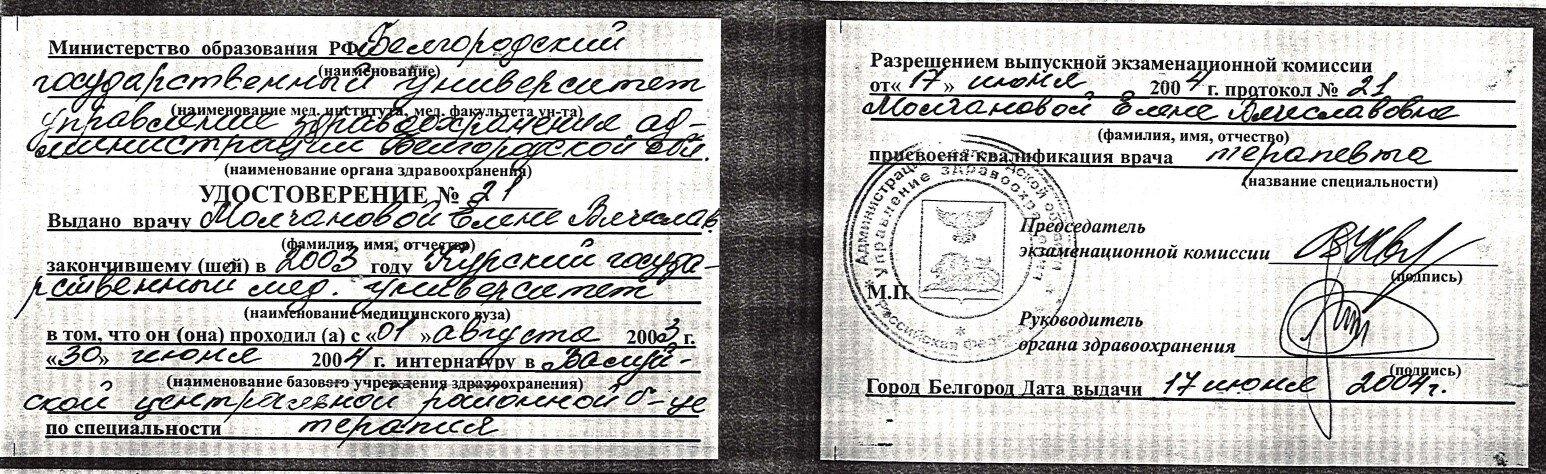 Министерство образования РФ Белгородский
(наименование)
государственный университет
(наименование мед. института, мед. факультета ун-та)
управление здравоохранения ад-
министрации Белгородской обл.
(наименование органа здравоохранения)
УДОСТОВЕРЕНИЕ № 21
Выдано врачу Молчановой Елене Вячеслав.
(фамилия, имя, отчество)
закончившему (шей) в 2003 году Курский госуда-
рственный мед. университет
(наименование медицинского вуза)
в том, что он (она) проходил (а) с «01» августа 2003 г.
«30» июня 2004 г. интернатуру в Валуй-
(наименование базового учреждения здравоохранения)
ской центральной районной б-це
по специальности терапия
Разрешением выпускной экзаменационной комиссии
от «17» июня 2004 г. протокол № 21
Молчановой Елене Вячеславовне
(фамилия, имя, отчество)
присвоена квалификация врача терапевта
(название специальности)
Председатель
экзаменационной комиссии
(подпись)
М.П.
Руководитель
органа здравоохранения
(подпись)
Город Белгород Дата выдачи 17 июня 2004г.
Администрация
Управление здравоохранения
Российская